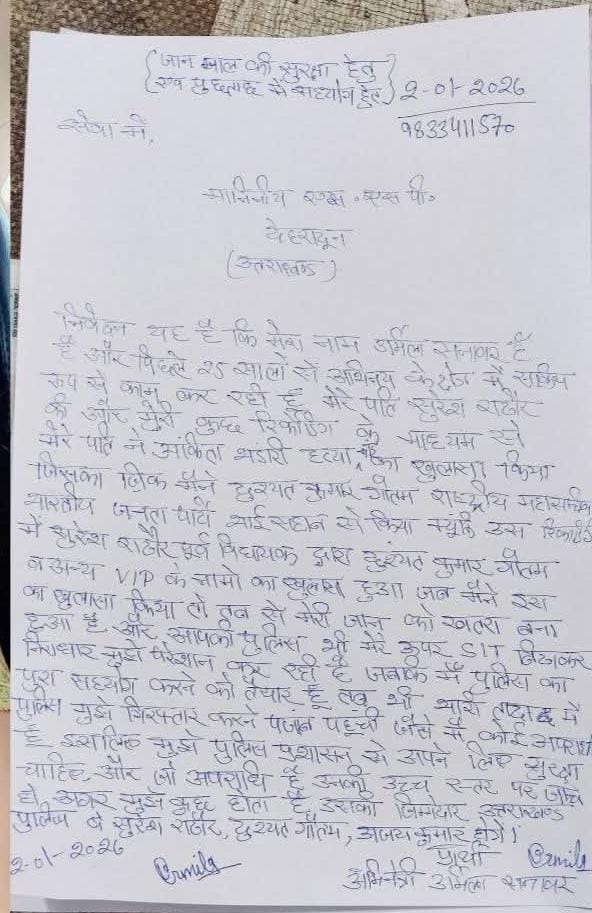 (जान माल की सुरक्षा हेतु
एवं पुछताछ में सहयोग हेतु) 2-01-2026
9833411570
सेवा में,
माननीय एस॰ एस पी॰
देहरादून
(उत्तराखण्ड)
निवेदन यह है कि मेरा नाम उर्मिला सनावर है
है और पिछले 25 सालों से अभिनय के क्षेत्र में सक्रिय
रूप से काम कर रही हूँ मेरे पति सुरेश राठौर
की और मेरी कुछ रिकोर्डिंग के माध्यम से
मेरे पति ने अंकिता भंडारी हत्या का खुलासा किया
जिसका जिक्र मैंने दुश्यंत कुमार गौतम राष्ट्रीय महासचिव
भारतीय जनता पार्टी भाई साहब से किया क्यूंकि उस रिकार्डिंग
में सुरेश राठौर पूर्व विधायक द्वारा दुश्यंत कुमार गौतम
व अन्य VIP के नामो का खुलासा हुआ जब मैंने इस
का खुलासा किया तो तब से मेरी जान को खतरा बना
हुआ है और आपकी पुलिस भी मेरे ऊपर SIT बिठाकर
निराधार मुझे परेशान कर रही है जबकि मैं पुलिस का
पूरा सहयोग करने को तैयार हूँ तब भी भारी तादाद में
पुलिस मुझे गिरफ्तार करने पहुची जैसे मैं कोई अपराधी
हूँ इसलिए मुझे पुलिस प्रशासन से अपने लिए सुरक्षा
चाहिए और जो अपराधि है उनकी उच्च स्तर पर जाँच
हो अगर मुझे कुछ होता है उसका जिम्मेदार उत्तराखण्ड
पुलिस व सुरेश राठौर, दुश्यंत गौतम, अजय कुमार होंगे।
प्रार्थी
2-01-2026 Urmila Urmila
अभिनेत्री उर्मिला सनावर